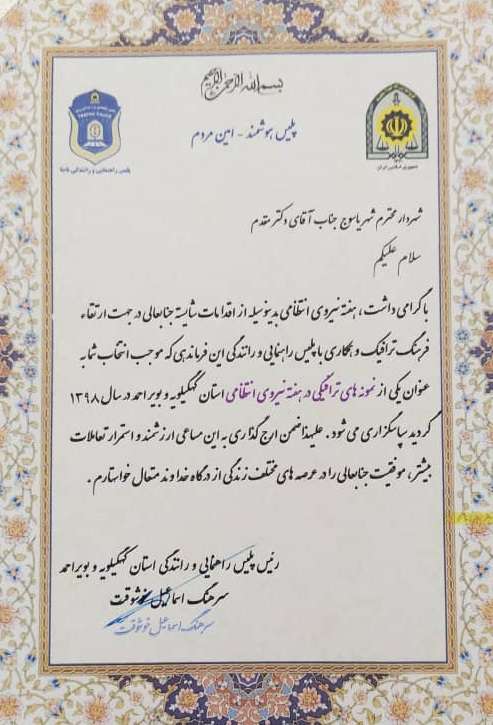 بسم الله الرحمن الرحیم
پلیس هوشمند - امین مردم
TRAFFIC POLICE
پلیس راهنمایی و رانندگی ناجا
جمهوری اسلامی ایران
شهردار محترم شهر یاسوج جناب آقای دکتر مقدم
سلام علیکم
با گرامی داشت، هفته نیروی انتظامی بدینوسیله از اقدامات شایسته جنابعالی در جهت ارتقاء
فرهنگ ترافیک و همکاری با پلیس راهنمایی و رانندگی این فرماندهی که موجب انتخاب شما به
عنوان یکی از نمونه های ترافیکی در هفته نیروی انتظامی استان کهگیلویه و بویر احمد در سال ۱۳۹۸
گردید سپاسگزاری می شود. علیهذا ضمن ارج گذاری به این مساعی ارزشمند و استمرار تعاملات
بیشتر، موفقیت جنابعالی را در عرصه های مختلف زندگی از درگاه خداوند متعال خواستارم.
رئیس پلیس راهنمایی و رانندگی استان کهگیلویه و بویراحمد
سرهنگ اسماعیل خوشوقت
سرهنگ اسماعیل خوشوقت